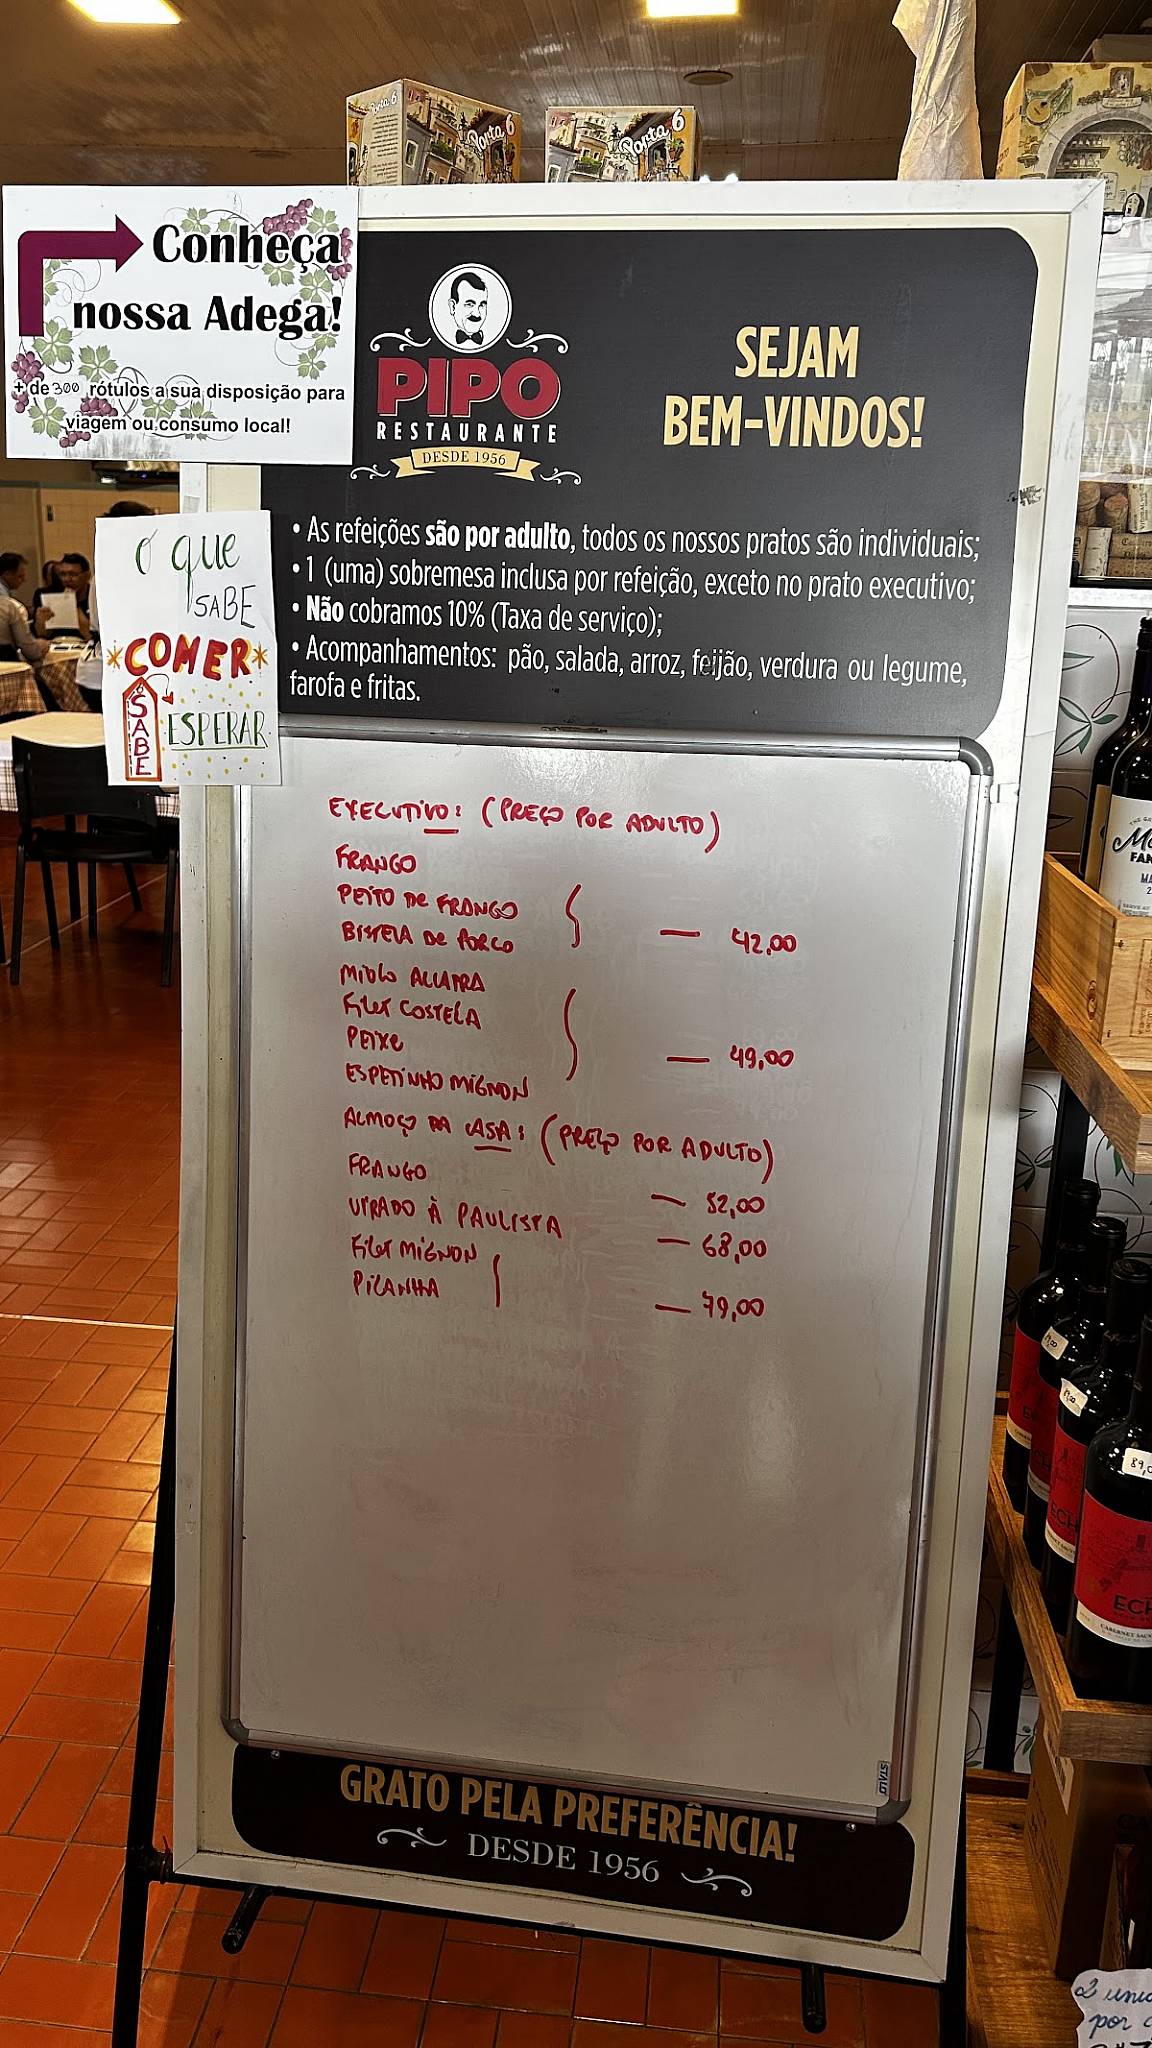 Porta 6
Porta 6
Conheça
nossa Adega!
+ de 300 rótulos a sua disposição para
viagem ou consumo local!
PIPO
RESTAURANTE
DESDE 1956
SEJAM
BEM-VINDOS!
• As refeições são por adulto, todos os nossos pratos são individuais;
• 1 (uma) sobremesa inclusa por refeição, exceto no prato executivo;
• Não cobramos 10% (Taxa de serviço);
• Acompanhamentos: pão, salada, arroz, feijão, verdura ou legume,
farofa e fritas.
O que
SABE
COMER
SABE
ESPERAR
EXECUTIVO: (PREÇO POR ADULTO)
FRANGO
PEITO DE FRANGO
BISTECA DE PORCO — 42,00
MIOLO ALCATRA
FILET COSTELA
PEIXE — 49,00
ESPETINHO MIGNON
ALMOÇO DA CASA: (PREÇO POR ADULTO)
FRANGO — 52,00
VIRADO À PAULISTA — 68,00
FILET MIGNON
PICANHA — 79,00
STALO
GRATO PELA PREFERÊNCIA!
DESDE 1956
FAN
89,0
ECH
CABERNET SAU
2 unid
por